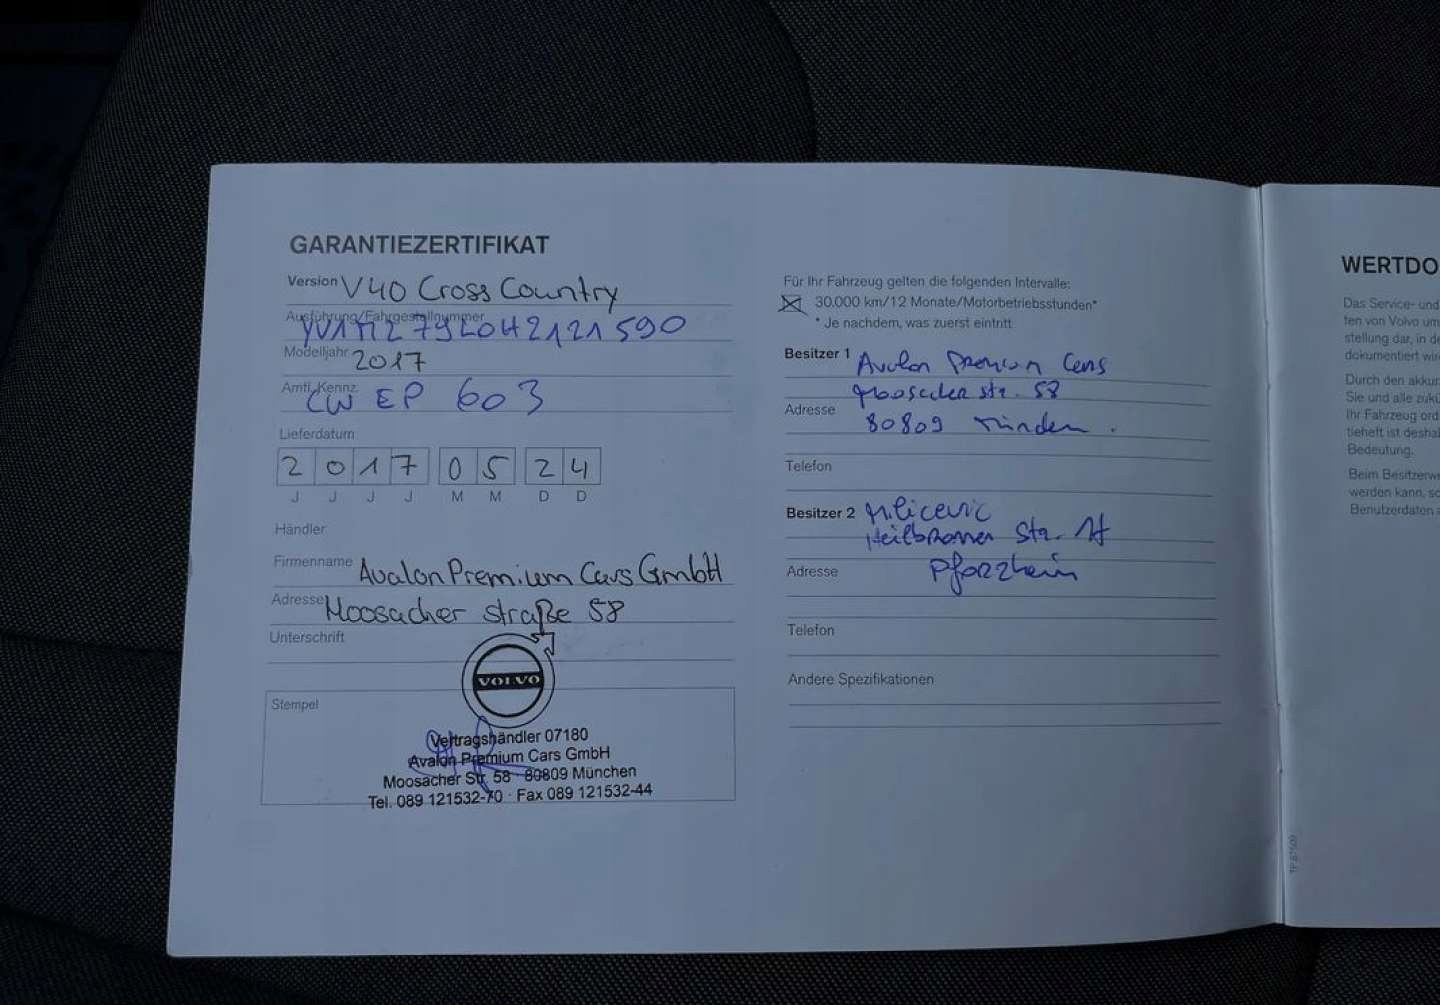 GARANTIEZERTIFIKAT
Version V40 Cross Country
Ausführung/Fahrgestellnummer
YV1MZ79L0H2121590
Modelljahr 2017
Amtl. Kennz.
CW EP 603
Lieferdatum
2 0 1 7 0 5 2 4
J J J J M M D D
Händler
Firmenname Avalon Premium Cars GmbH
Adresse Moosacher straße 58
Unterschrift
VOLVO
Stempel
Vertragshändler 07180
Avalon Premium Cars GmbH
Moosacher Str. 58 · 80809 München
Tel. 089 121532-70 · Fax 089 121532-44
Für Ihr Fahrzeug gelten die folgenden Intervalle:
30.000 km/12 Monate/Motorbetriebsstunden*
* Je nachdem, was zuerst eintritt
Besitzer 1 Avalon Premium Cars
Moosacher Str. 58
Adresse
80809 München.
Telefon
Besitzer 2 Milicevic
Heilbronner Str.
Adresse Pforzheim
Telefon
Andere Spezifikationen
WERTDO
Das Service- und
ten von Volvo um
stellung dar, in de
dokumentiert wir
Durch den akkur
Sie und alle zukü
Ihr Fahrzeug ord
tieheft ist desha
Bedeutung.
Beim Besitzerwe
werden kann, so
Benutzerdaten a